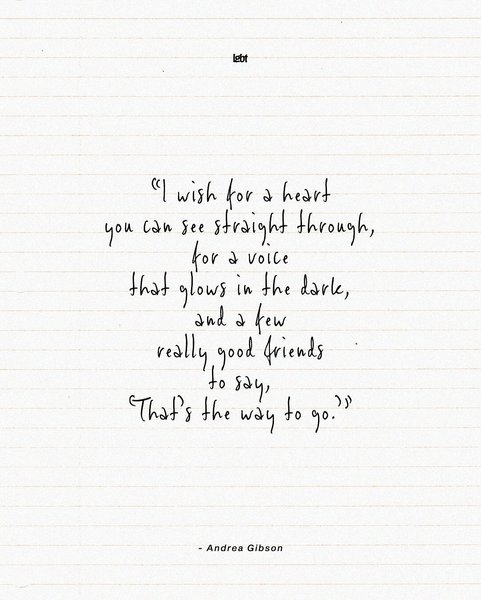 "I wish for a heart
you can see straight through,
for a voice
that glows in the dark,
and a few
really good friends
to say,
'That's the way to go.'"
- Andrea Gibson